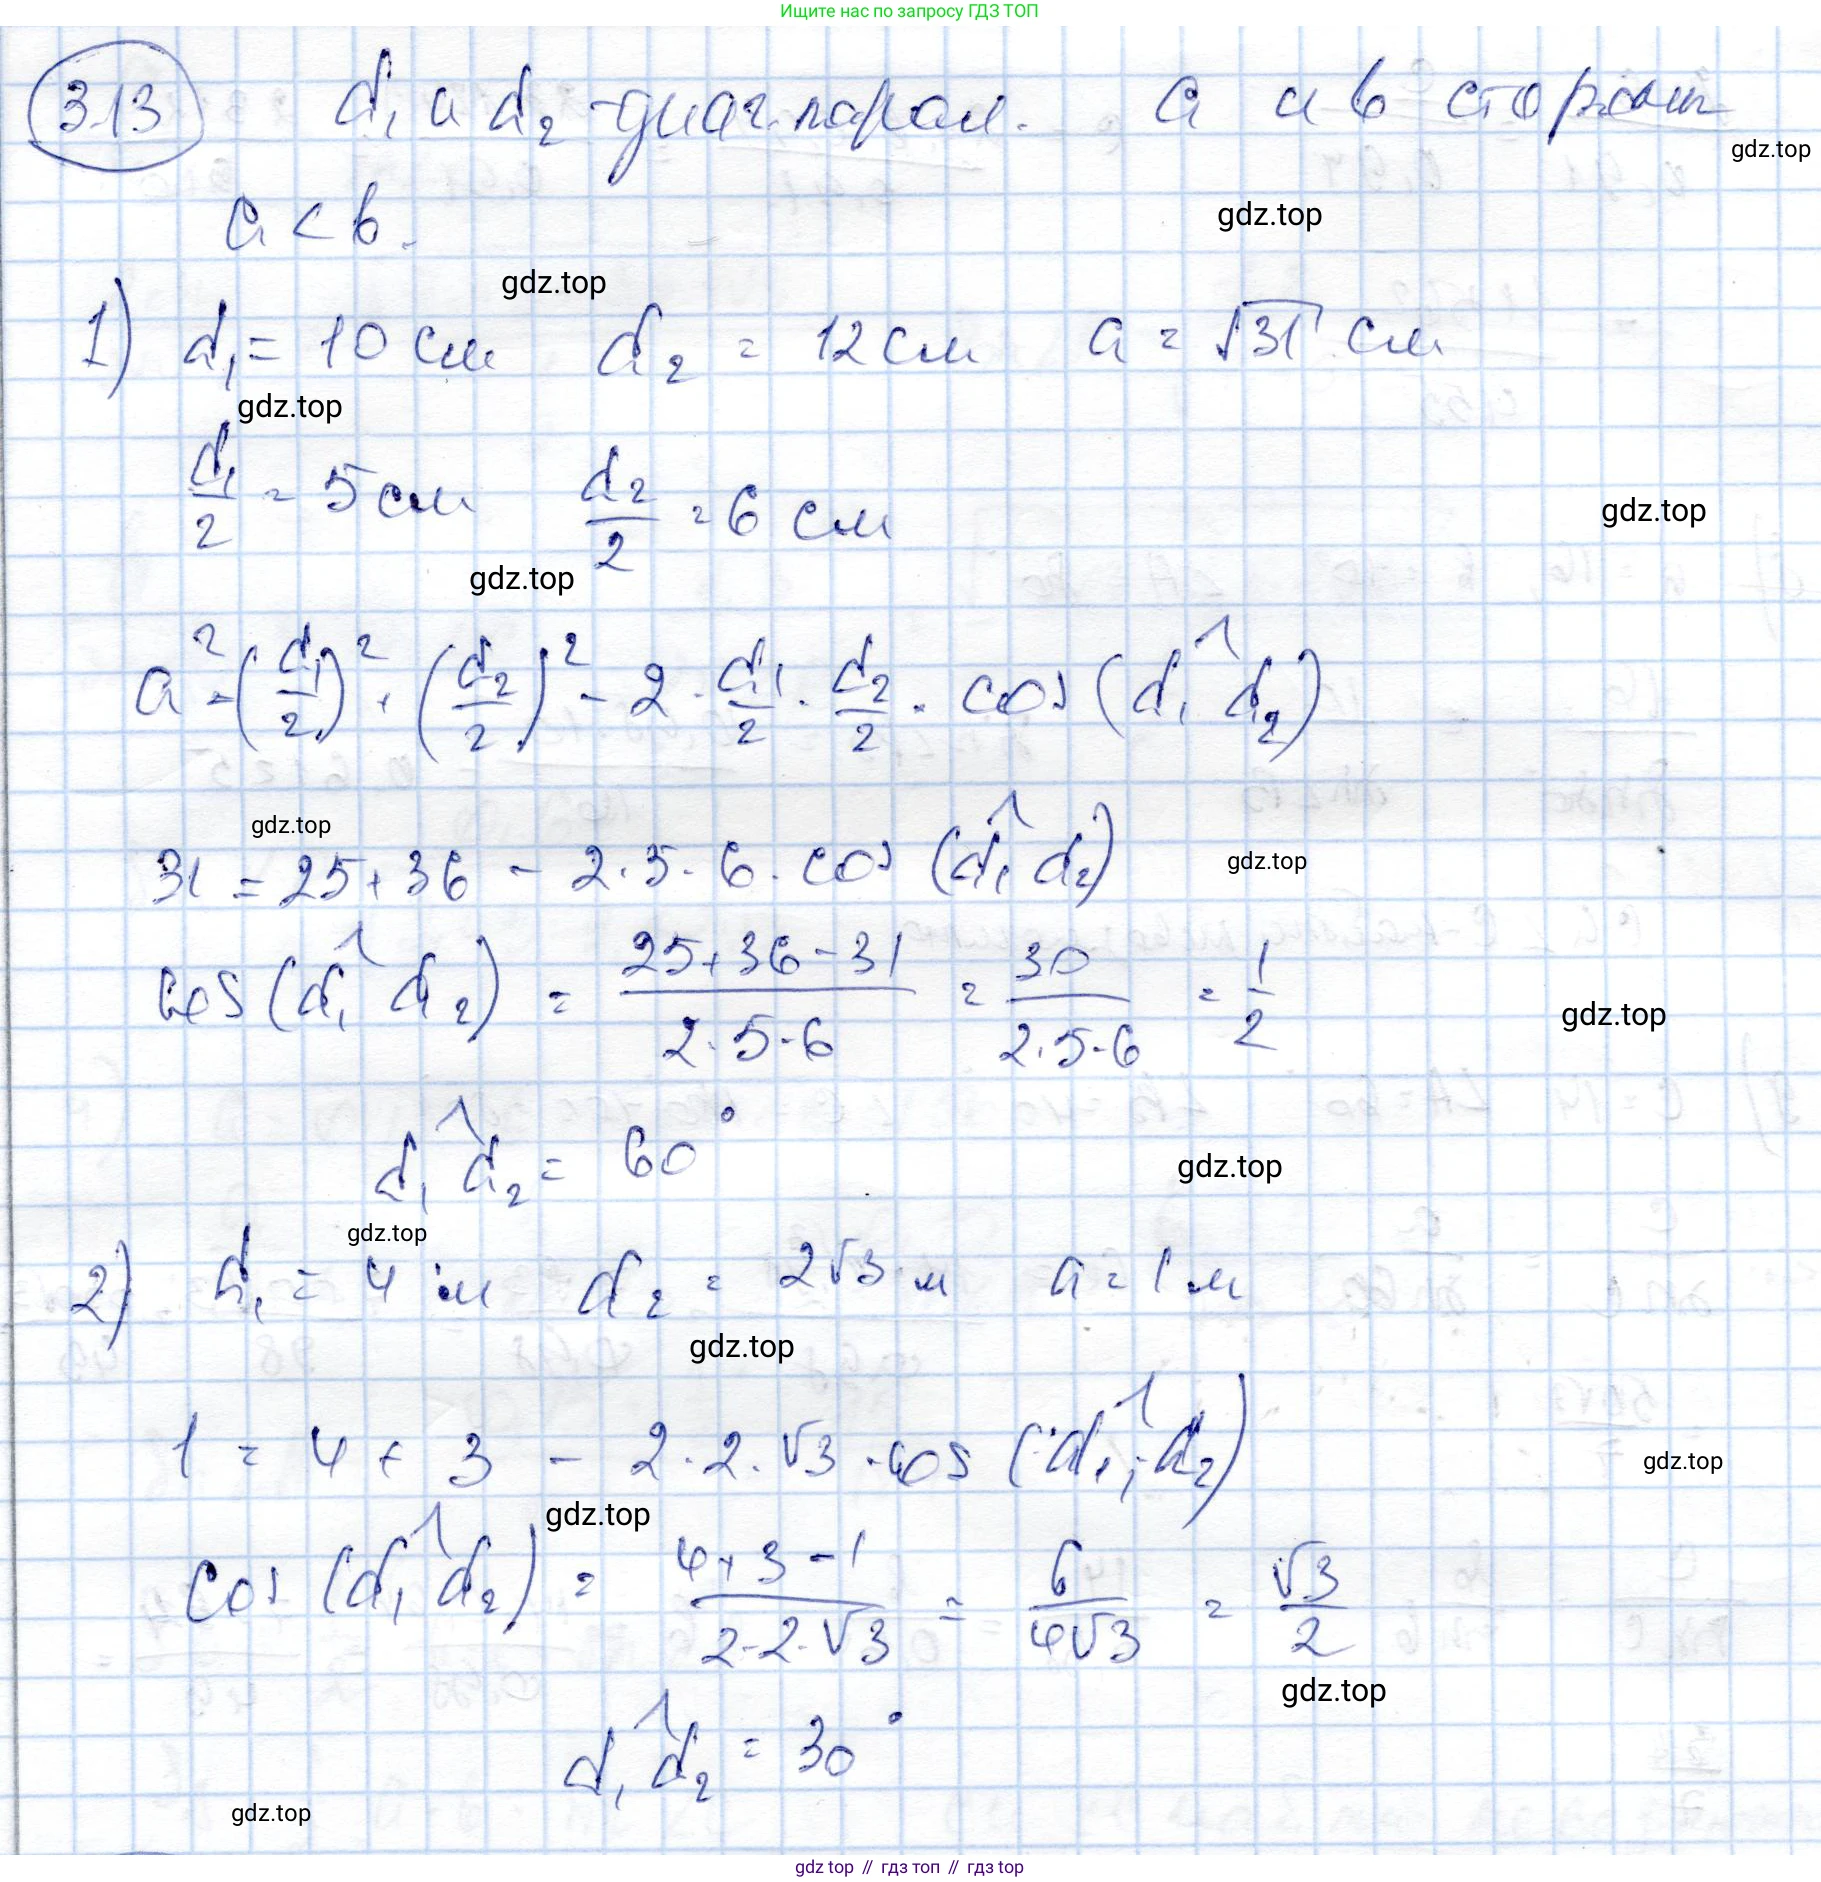 Ищите нас по запросу ГДЗ ТОП
313 d₁ и d₂ - диаг. парал. a и b стороны
gdz.top
a < b. gdz.top
gdz.top
1) d₁ = 10 см d₂ = 12 см a = √31 см
gdz.top
d₁/2 = 5 см d₂/2 = 6 см gdz.top
gdz.top
a² = (d₁/2)² + (d₂/2)² - 2 · d₁/2 · d₂/2 · cos (d₁^d₂)
gdz.top
31 = 25 + 36 - 2 · 5 · 6 · cos (d₁^d₂) gdz.top
cos (d₁^d₂) = (25 + 36 - 31)/(2 · 5 · 6) = 30/(2 · 5 · 6) = 1/2 gdz.top
d₁^d₂ = 60° gdz.top
gdz.top
2) d₁ = 4 м d₂ = 2√3 м a = 1 м
gdz.top
1 = 4 + 3 - 2 · 2 · √3 · cos (d₁^; d₂) gdz.top
gdz.top
cos (d₁^d₂) = (4 + 3 - 1)/(2 · 2 · √3) = 6/(4√3) = √3/2
gdz.top
d₁^d₂ = 30°
gdz.top
gdz top // гдз топ // gdz top